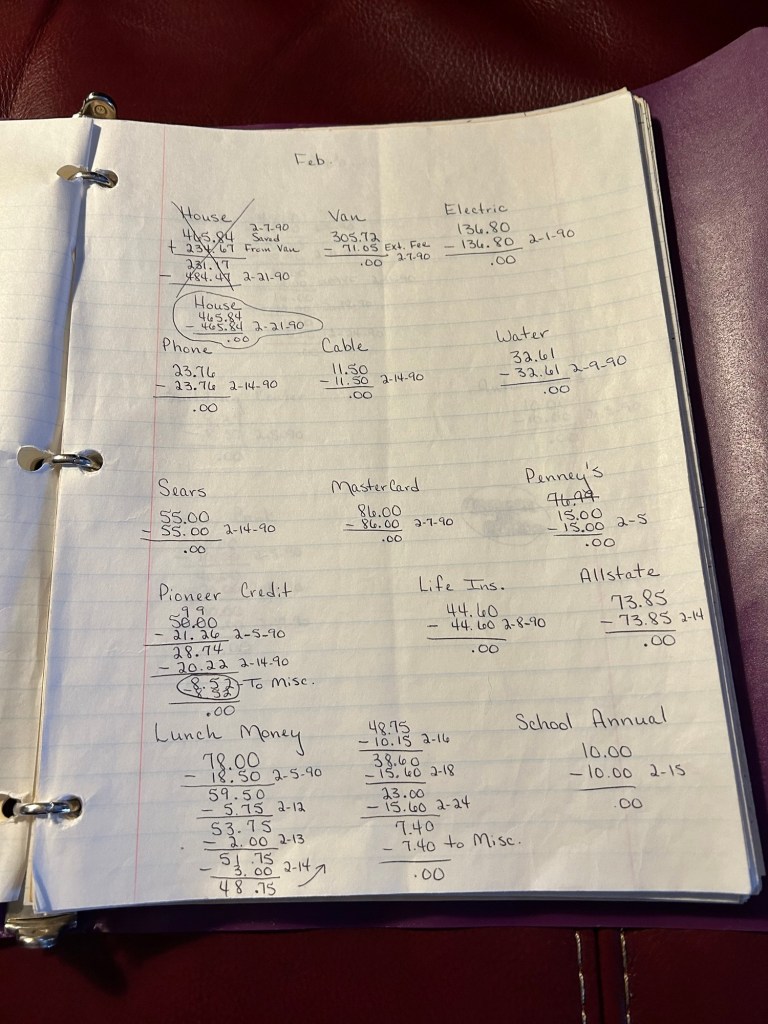 Feb.
House
465.84 2-7-90 Saved
+ 234.67 From Van
231.17
- 484.47 2-21-90
House
465.84
- 465.84 2-21-90
.00
Van
305.72
- 71.05 Ext. Fee
.00 2-7-90
Electric
136.80
- 136.80 2-1-90
.00
Phone
23.76
- 23.76 2-14-90
.00
Cable
11.50
- 11.50 2-14-90
.00
Water
32.61
- 32.61 2-9-90
.00
Sears
55.00
- 55.00 2-14-90
.00
MasterCard
86.00
- 86.00 2-7-90
.00
Penney's
15.00
- 15.00 2-5
.00
Pioneer Credit
99
50.00
- 21.26 2-5-90
28.74
- 20.22 2-14-90
8.52 - To Misc.
- 8.52
.00
Life Ins.
44.60
- 44.60 2-8-90
.00
Allstate
73.85
- 73.85 2-14
.00
Lunch Money
78.00
- 18.50 2-5-90
59.50
- 5.75 2-12
53.75
- 2.00 2-13
51.75
- 3.00 2-14
48.75
48.75
- 10.15 2-16
38.60
- 15.60 2-18
23.00
- 15.60 2-24
7.40
- 7.40 to Misc.
.00
School Annual
10.00
- 10.00 2-15
.00